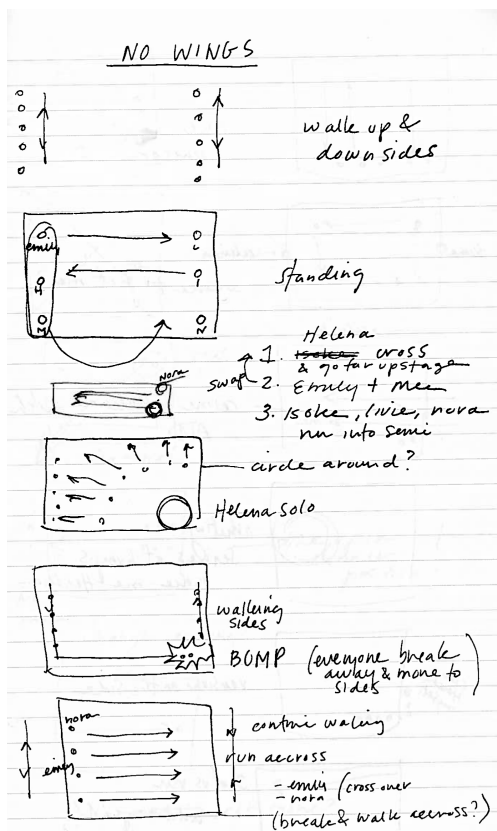 NO WINGS
walk up &
down sides
emily
L
H
I
M
N
standing
Helena
1. Isokee cross
& go far upstage
swap 2. Emily + Mee
Nora
3. Isokee, livie, nora
run into semi
circle around?
Helena solo
walking
sides
BOMP (everyone break
away & move to
sides)
nora
continue waling
run accross
emily
- emily (cross over
- nora
(break & walk accross?)